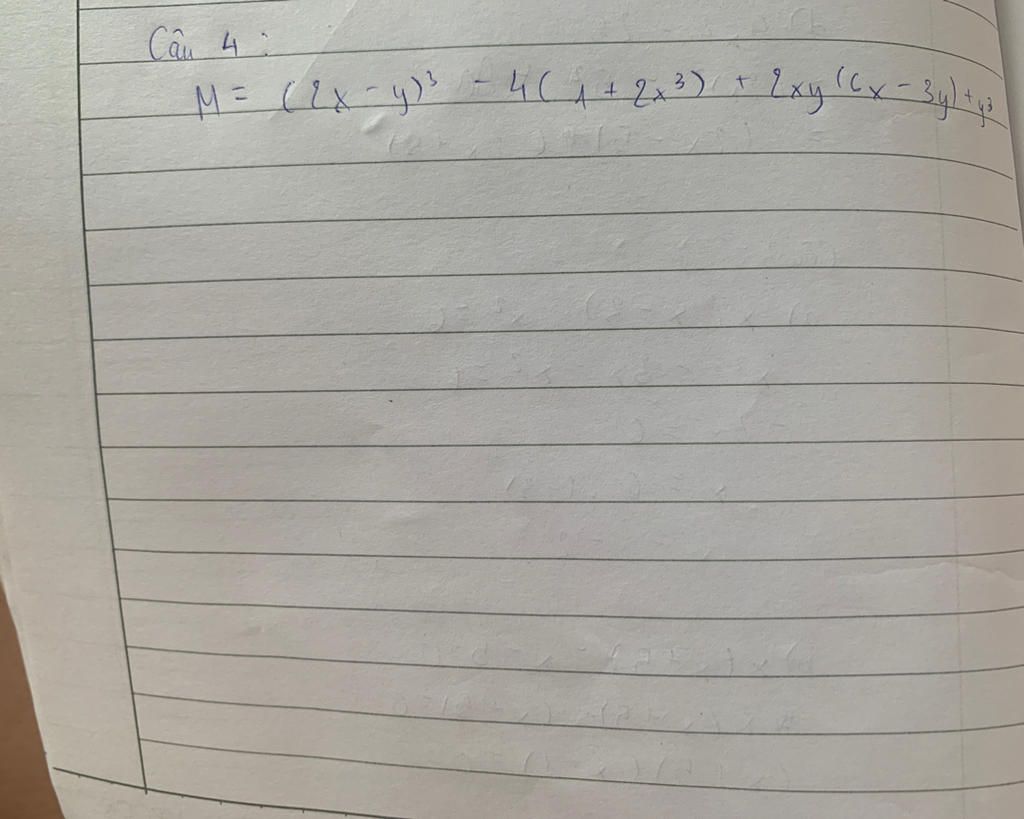 Câu 4 :
M = (2x - y)³ - 4( 1 + 2x³) + 2xy (6x - 3y) + y³